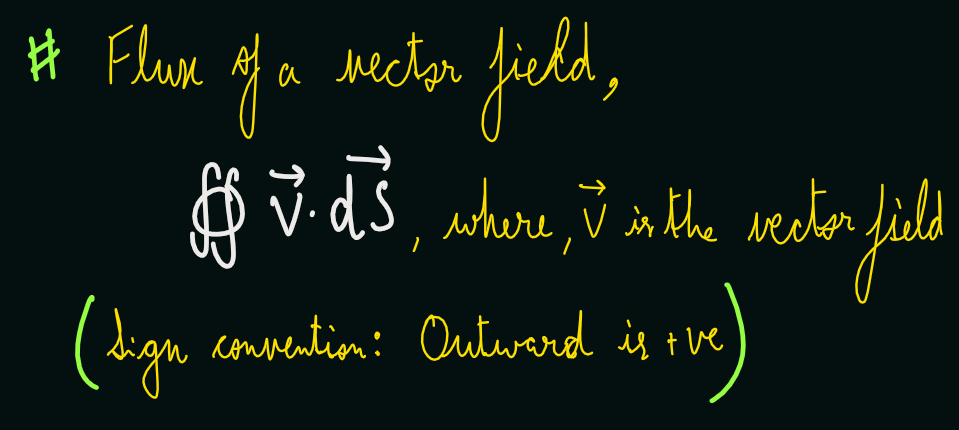 # Flux of a vector field,
∯ v⃗ · dS⃗, where, v⃗ is the vector field
(Sign convention: Outward is +ve)